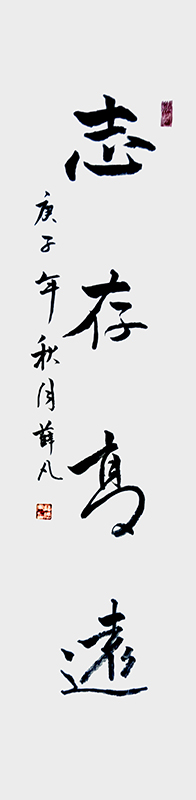 志存高遠
庚子年秋月薛凡